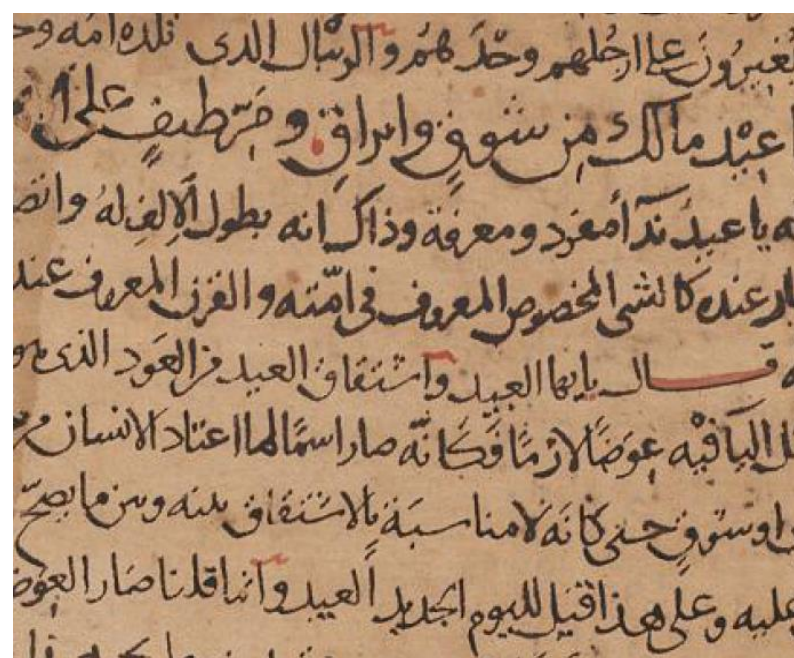 يغيرون على ارجلهم وحدهم والرئبال الذى تلده امه وحده
يا عيد مالك من شوق وايراق ومر طيف على ا
يا عيد ندآ أمفرد ومعرفة وذاك انه بطول الالف له واتصا
عنده كالشى المخصوص المعروف فى امته والقرن المعروف عند
قال يايها العيد واشتقاق العيد من العود الذى هو
اليآ فيه عوضًا لازمًا فكانه صار اسمًا لما اعتاد الانسان من
او شوق حتى كانه لا مناسبة بالاشتقاق بينه وبين ما يصح
عليه وعلى هذا قيل لليوم الجديد العيد وانما قلنا صار العوض